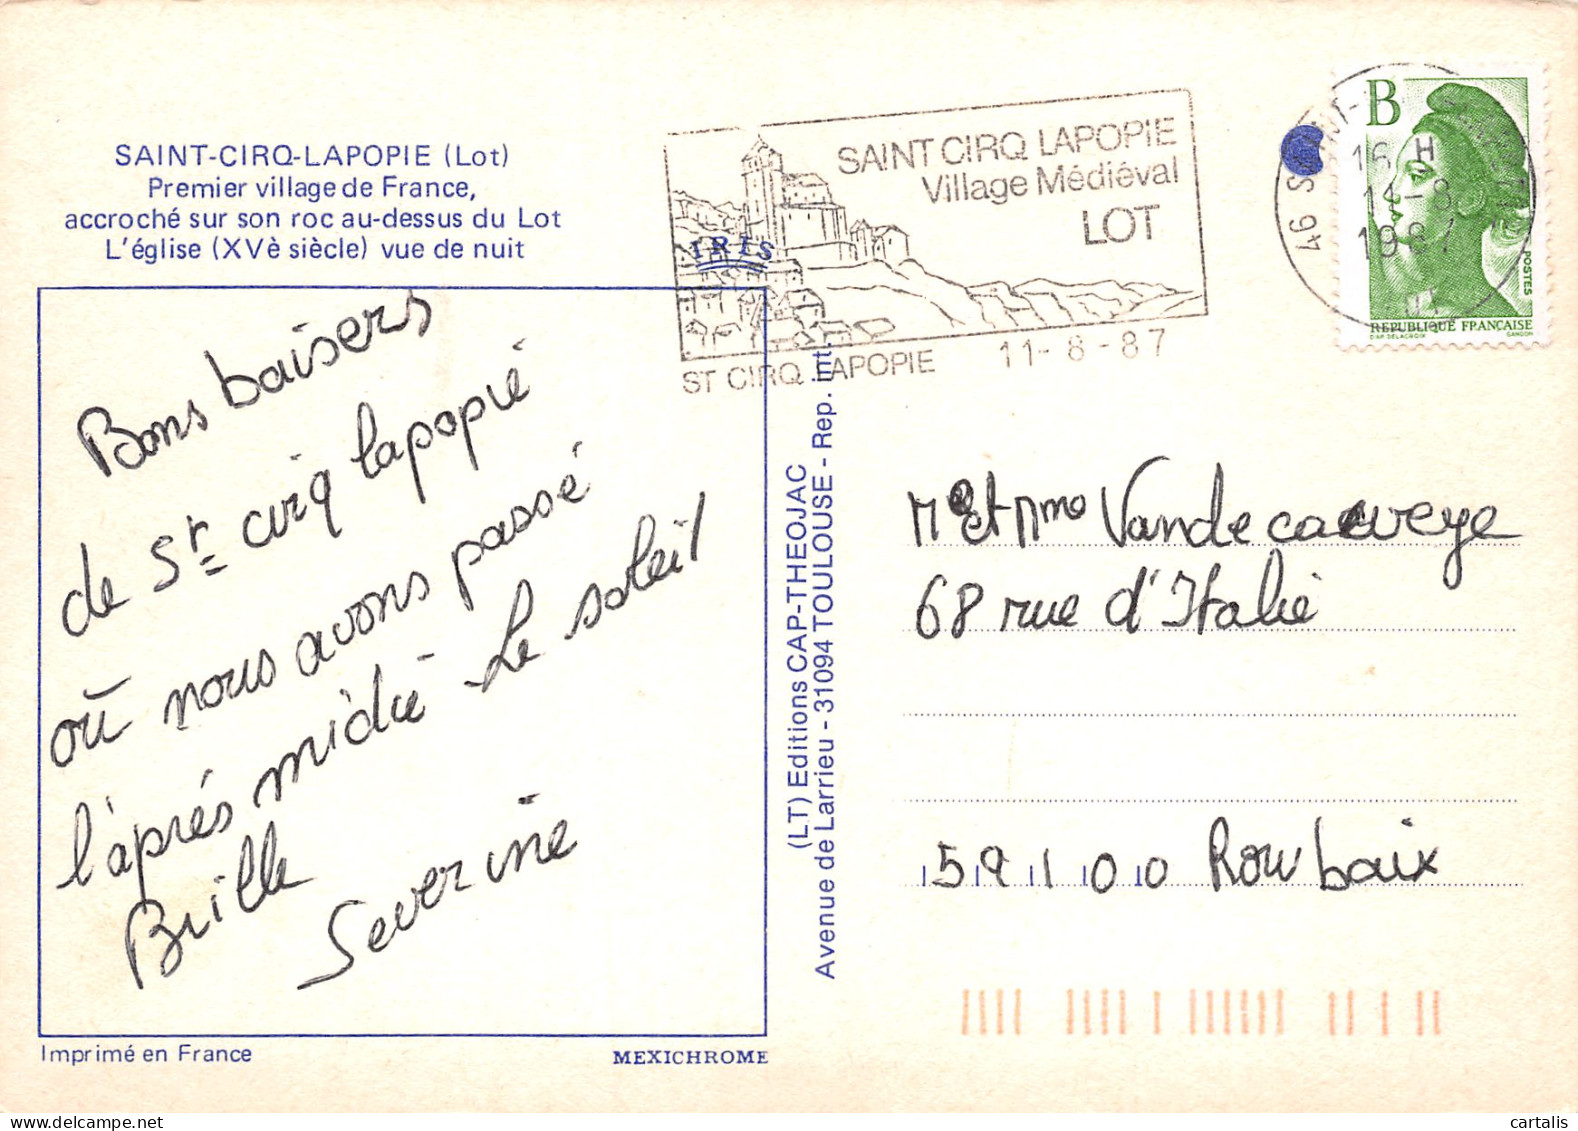 SAINT-CIRQ-LAPOPIE (Lot)
Premier village de France,
accroché sur son roc au-dessus du Lot
L'église (XVè siècle) vue de nuit
IRIS
SAINT CIRQ LAPOPIE
Village Médiéval
LOT
ST CIRQ LAPOPIE 11-8-87
46
16 H
11-8
1987
B
POSTES
REPUBLIQUE FRANÇAISE
D'AP. DELACROIX GANDON
Bons baisers
de St cirq lapopié
où nous avons passé
l'après midié Le soleil
Brille
Severine
(LT) Editions CAP-THEOJAC
Avenue de Larrieu - 31094 TOULOUSE - Rep. int.
Mr et Mme Vandecaveye
68 rue d'Italie
59100 Roubaix
Imprimé en France
MEXICHROME
cartalis